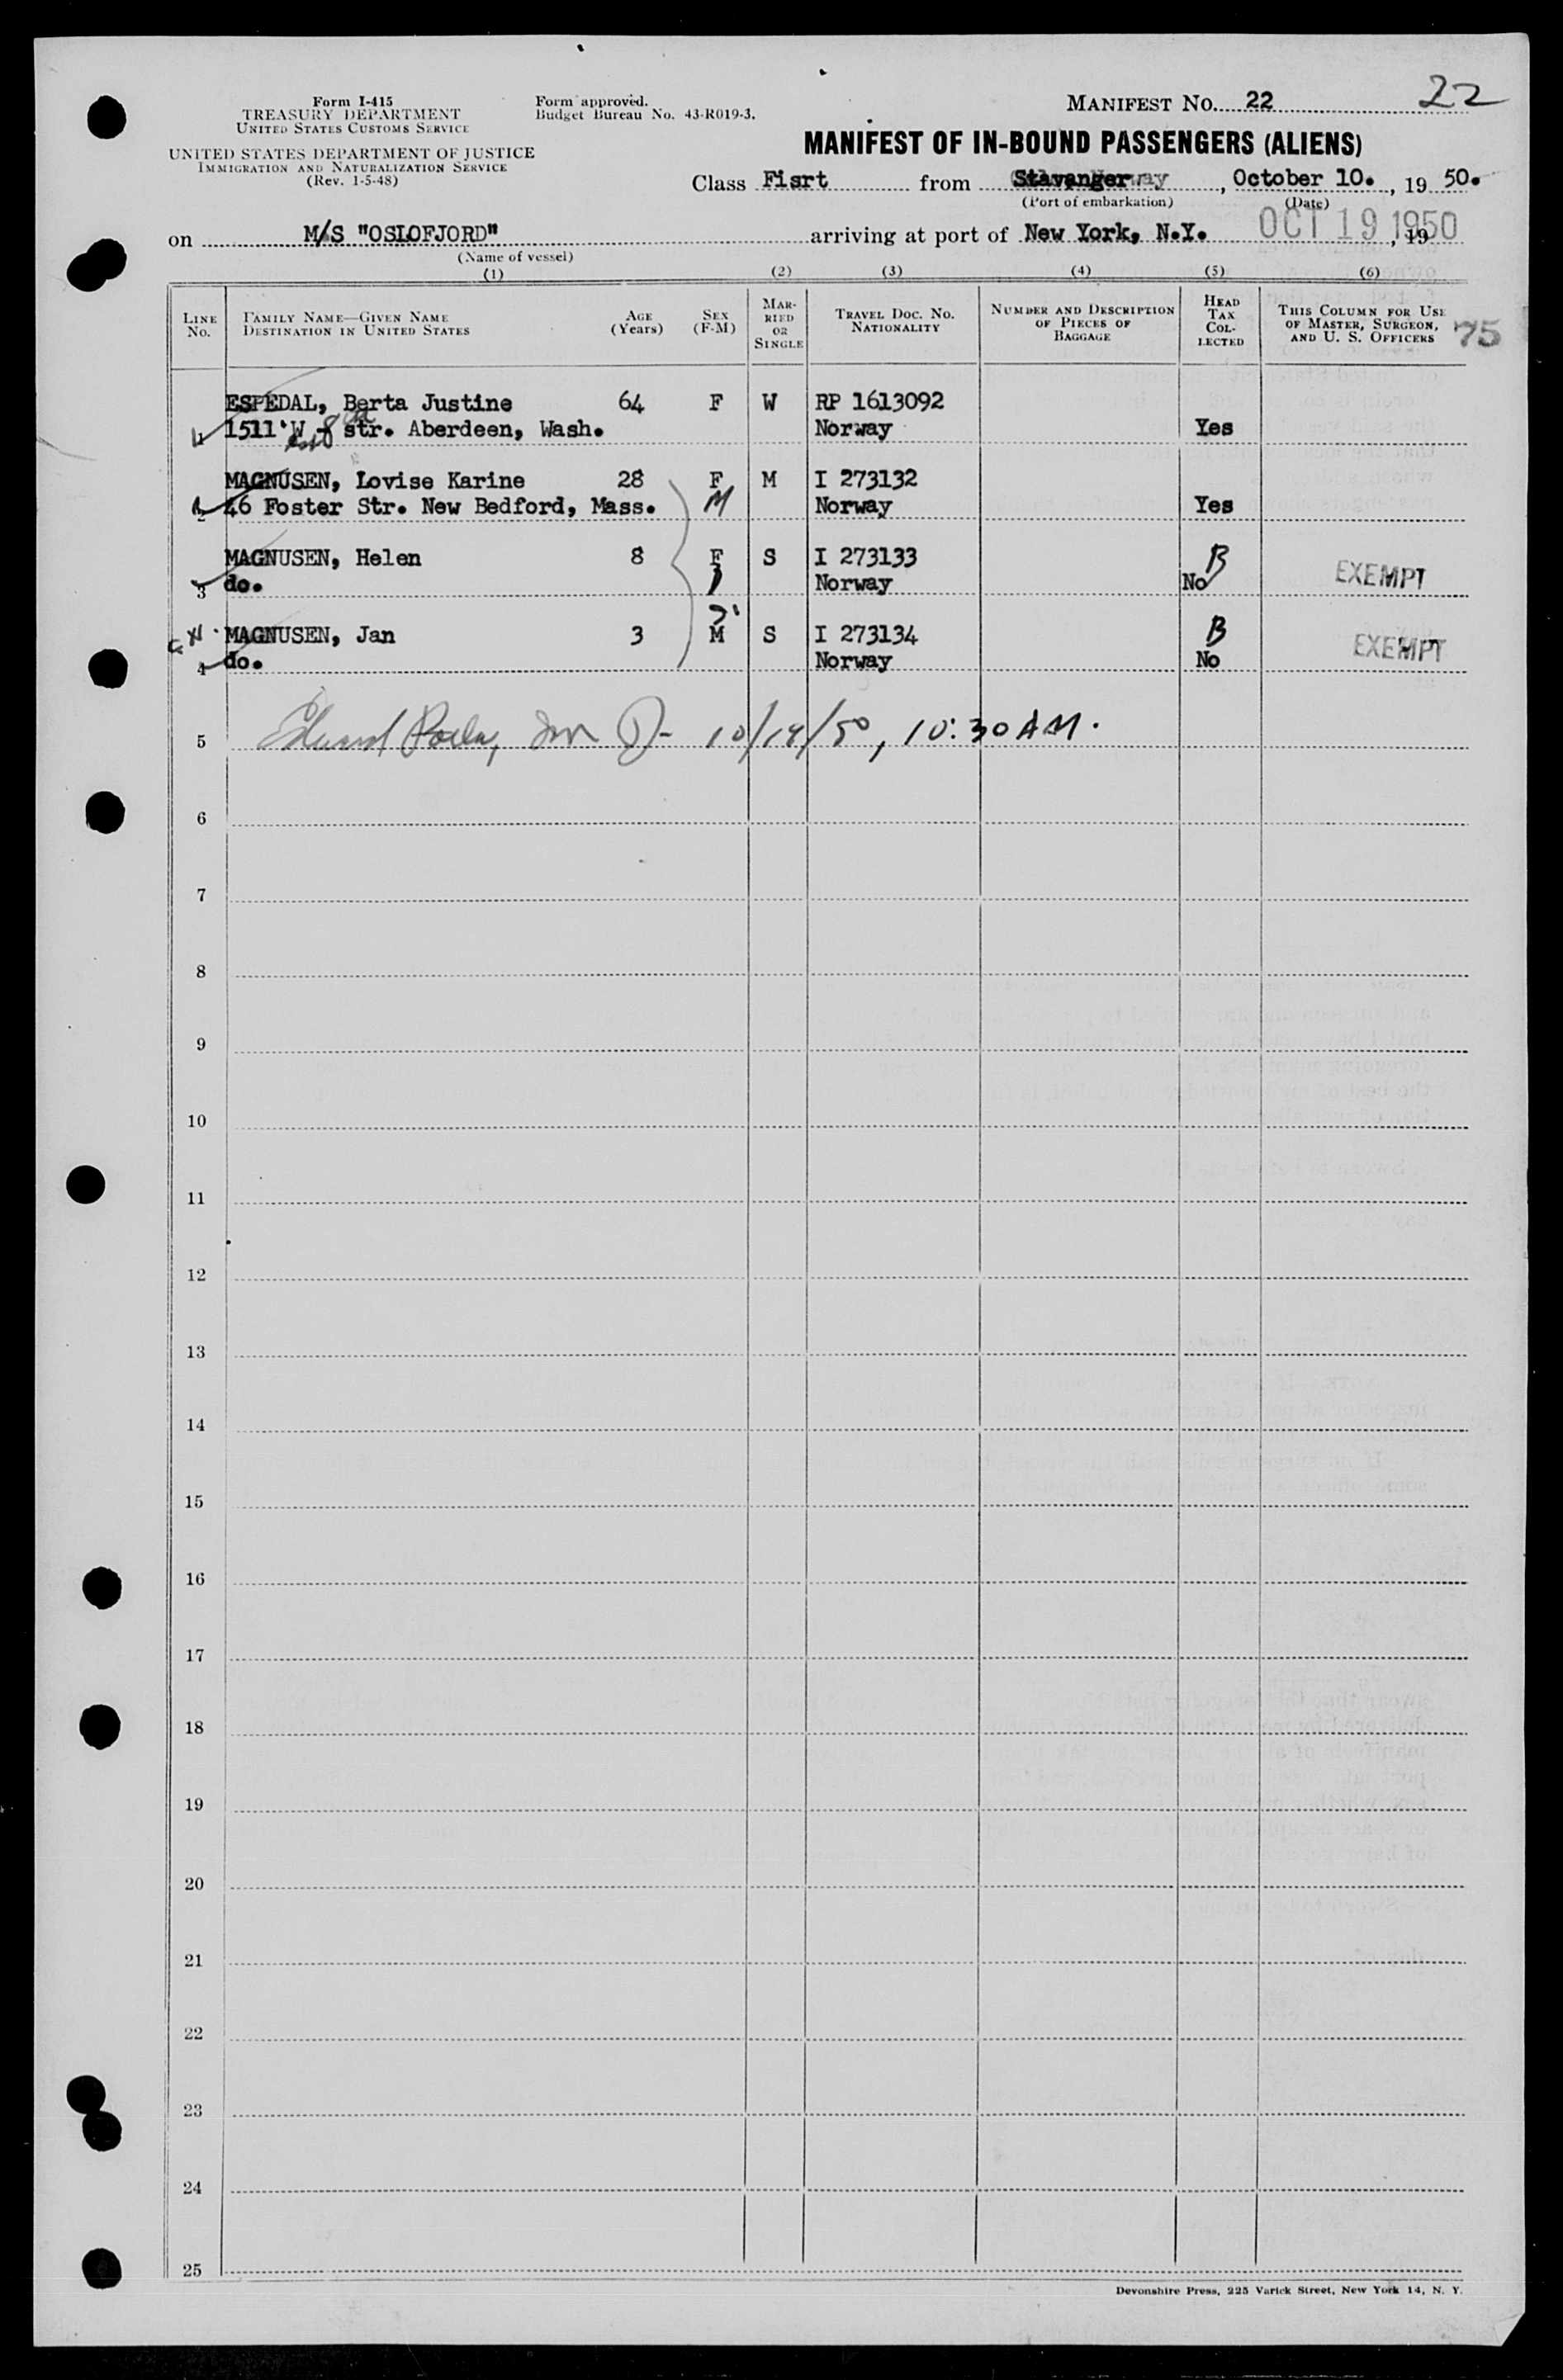 Form I-415
TREASURY DEPARTMENT
UNITED STATES CUSTOMS SERVICE
UNITED STATES DEPARTMENT OF JUSTICE
IMMIGRATION AND NATURALIZATION SERVICE
(Rev. 1-5-48)
Form approved.
Budget Bureau No. 43-R019-3.
MANIFEST NO. 22
22
MANIFEST OF IN-BOUND PASSENGERS (ALIENS)
Class Fisrt from Stavanger, October 10., 19 50.
(Port of embarkation) (Date)
on M/S "OSLOFJORD" arriving at port of New York, N.Y. OCT 19 1950, 19
(Name of vessel)
(1) (2) (3) (4) (5) (6)
LINE No.
FAMILY NAME—GIVEN NAME
DESTINATION IN UNITED STATES
AGE (Years)
SEX (F-M)
MARRIED OR SINGLE
TRAVEL DOC. NO. NATIONALITY
NUMBER AND DESCRIPTION OF PIECES OF BAGGAGE
HEAD TAX COLLECTED
THIS COLUMN FOR USE OF MASTER, SURGEON, AND U. S. OFFICERS
75
ESPEDAL, Berta Justine 64 F W RP 1613092
1 1511 W 8 str. Aberdeen, Wash. Norway Yes
MAGNUSEN, Lovise Karine 28 F M I 273132
2 46 Foster Str. New Bedford, Mass. M Norway Yes
MAGNUSEN, Helen 8 F S I 273133 B
3 do. Norway No EXEMPT
MAGNUSEN, Jan 3 M S I 273134 B
4 do. Norway No EXEMPT
5 10/19/50, 10:30 AM.
6
7
8
9
10
11
12
13
14
15
16
17
18
19
20
21
22
23
24
25
Devonshire Press, 225 Varick Street, New York 14, N. Y.